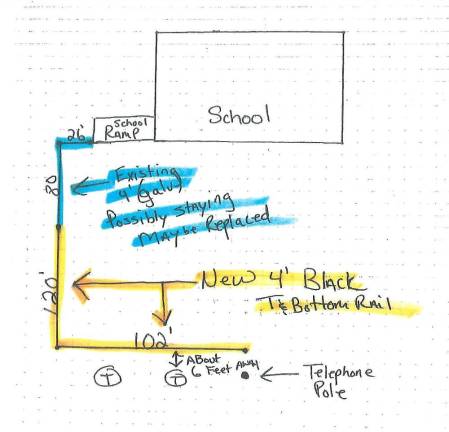 School
School
Ramp
26'
Existing
4' (galv)
Possibly Staying
Maybe Replaced
80
120'
New 4' Black
T & Bottom Rail
102'
About
6 Feet Away
T
T
Telephone
Pole